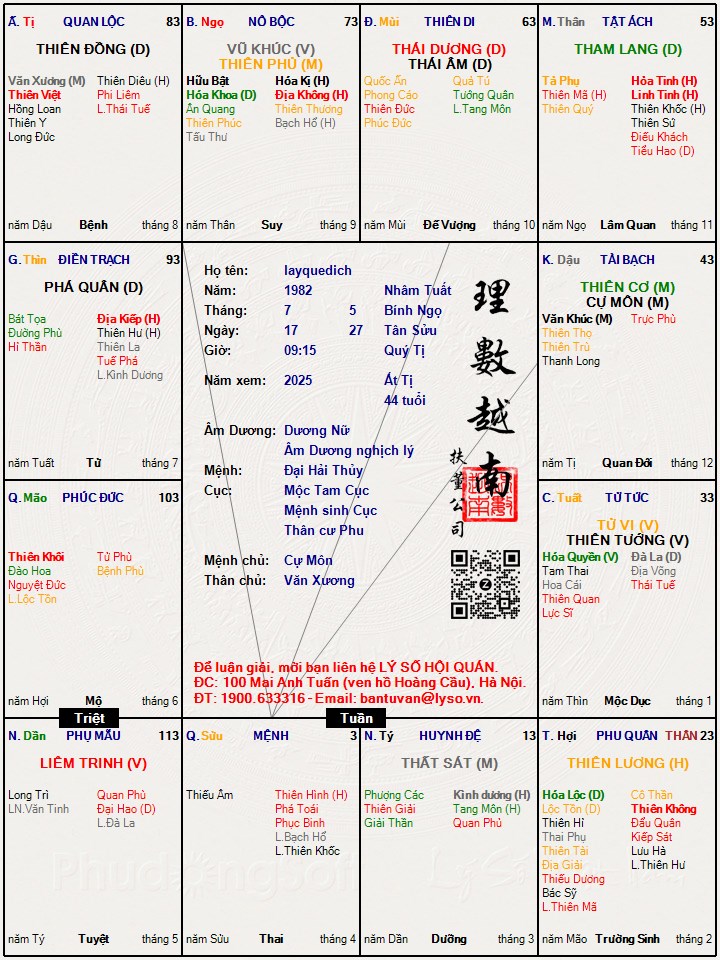 Ã. Tị QUAN LỘC 83
THIÊN ĐỒNG (D)
Văn Xương (M) Thiên Diêu (H)
Thiên Việt Phi Liêm
Hồng Loan L.Thái Tuế
Thiên Y
Long Đức
năm Dậu Bệnh tháng 8
B. Ngọ NÔ BỘC 73
VŨ KHÚC (V)
THIÊN PHỦ (M)
Hữu Bật Hóa Kị (H)
Hóa Khoa (D) Địa Không (H)
Ân Quang Thiên Thương
Thiên Phúc Bạch Hổ (H)
Tấu Thư
năm Thân Suy tháng 9
Đ. Mùi THIÊN DI 63
THÁI DƯƠNG (D)
THÁI ÂM (D)
Quốc Ấn Quả Tú
Phong Cáo Tướng Quân
Thiên Đức L.Tang Môn
Phúc Đức
năm Mùi Đế Vượng tháng 10
M. Thân TẬT ÁCH 53
THAM LANG (D)
Tả Phụ Hỏa Tinh (H)
Thiên Mã (H) Linh Tinh (H)
Thiên Quý Thiên Khốc (H)
Thiên Sứ
Điếu Khách
Tiểu Hao (D)
năm Ngọ Lâm Quan tháng 11
G. Thìn ĐIỀN TRẠCH 93
PHÁ QUÂN (D)
Bát Tọa Địa Kiếp (H)
Đường Phù Thiên Hư (H)
Hỉ Thần Thiên La
Tuế Phá
L.Kình Dương
năm Tuất Tử tháng 7
Họ tên: layquedich
Năm: 1982 Nhâm Tuất
Tháng: 7 5 Bính Ngọ
Ngày: 17 27 Tân Sửu
Giờ: 09:15 Quý Tị
Năm xem: 2025 Ất Tị
44 tuổi
Âm Dương: Dương Nữ
Âm Dương nghịch lý
Mệnh: Đại Hải Thủy
Cục: Mộc Tam Cục
Mệnh sinh Cục
Thân cư Phu
Mệnh chủ: Cự Môn
Thân chủ: Văn Xương
理數越南
扶董公司
Để luận giải, mời bạn liên hệ LÝ SỐ HỘI QUÁN.
ĐC: 100 Mai Anh Tuấn (ven hồ Hoàng Cầu), Hà Nội.
ĐT: 1900.633316 - Email: bantuvan@lyso.vn.
K. Dậu TÀI BẠCH 43
THIÊN CƠ (M)
CỰ MÔN (M)
Văn Khúc (M) Trực Phù
Thiên Thọ
Thiên Trù
Thanh Long
năm Tị Quan Đới tháng 12
Q. Mão PHÚC ĐỨC 103
Thiên Khôi Tử Phù
Đào Hoa Bệnh Phù
Nguyệt Đức
L.Lộc Tồn
năm Hợi Mộ tháng 6
C. Tuất TỬ TỨC 33
TỬ VI (V)
THIÊN TƯỚNG (V)
Hóa Quyền (V) Đà La (D)
Tam Thai Địa Võng
Hoa Cái Thái Tuế
Thiên Quan
Lực Sĩ
năm Thìn Mộc Dục tháng 1
Triệt
Tuần
N. Dần PHỤ MẪU 113
LIÊM TRINH (V)
Long Trì Quan Phù
LN.Văn Tinh Đại Hao (D)
L.Đà La
năm Tý Tuyệt tháng 5
Q. Sửu MỆNH 3
Thiếu Âm Thiên Hình (H)
Phá Toái
Phục Binh
L.Bạch Hổ
L.Thiên Khốc
năm Sửu Thai tháng 4
N. Tý HUYNH ĐỆ 13
THẤT SÁT (M)
Phượng Các Kình dương (H)
Thiên Giải Tang Môn (H)
Giải Thần Quan Phủ
năm Dần Dưỡng tháng 3
T. Hợi PHU QUÂN THÂN 23
THIÊN LƯƠNG (H)
Hóa Lộc (D) Cô Thần
Lộc Tồn (D) Thiên Không
Thiên Hỉ Đẩu Quân
Thai Phụ Kiếp Sát
Thiên Tài Lưu Hà
Địa Giải L.Thiên Hư
Thiếu Dương
Bác Sỹ
L.Thiên Mã
năm Mão Trường Sinh tháng 2